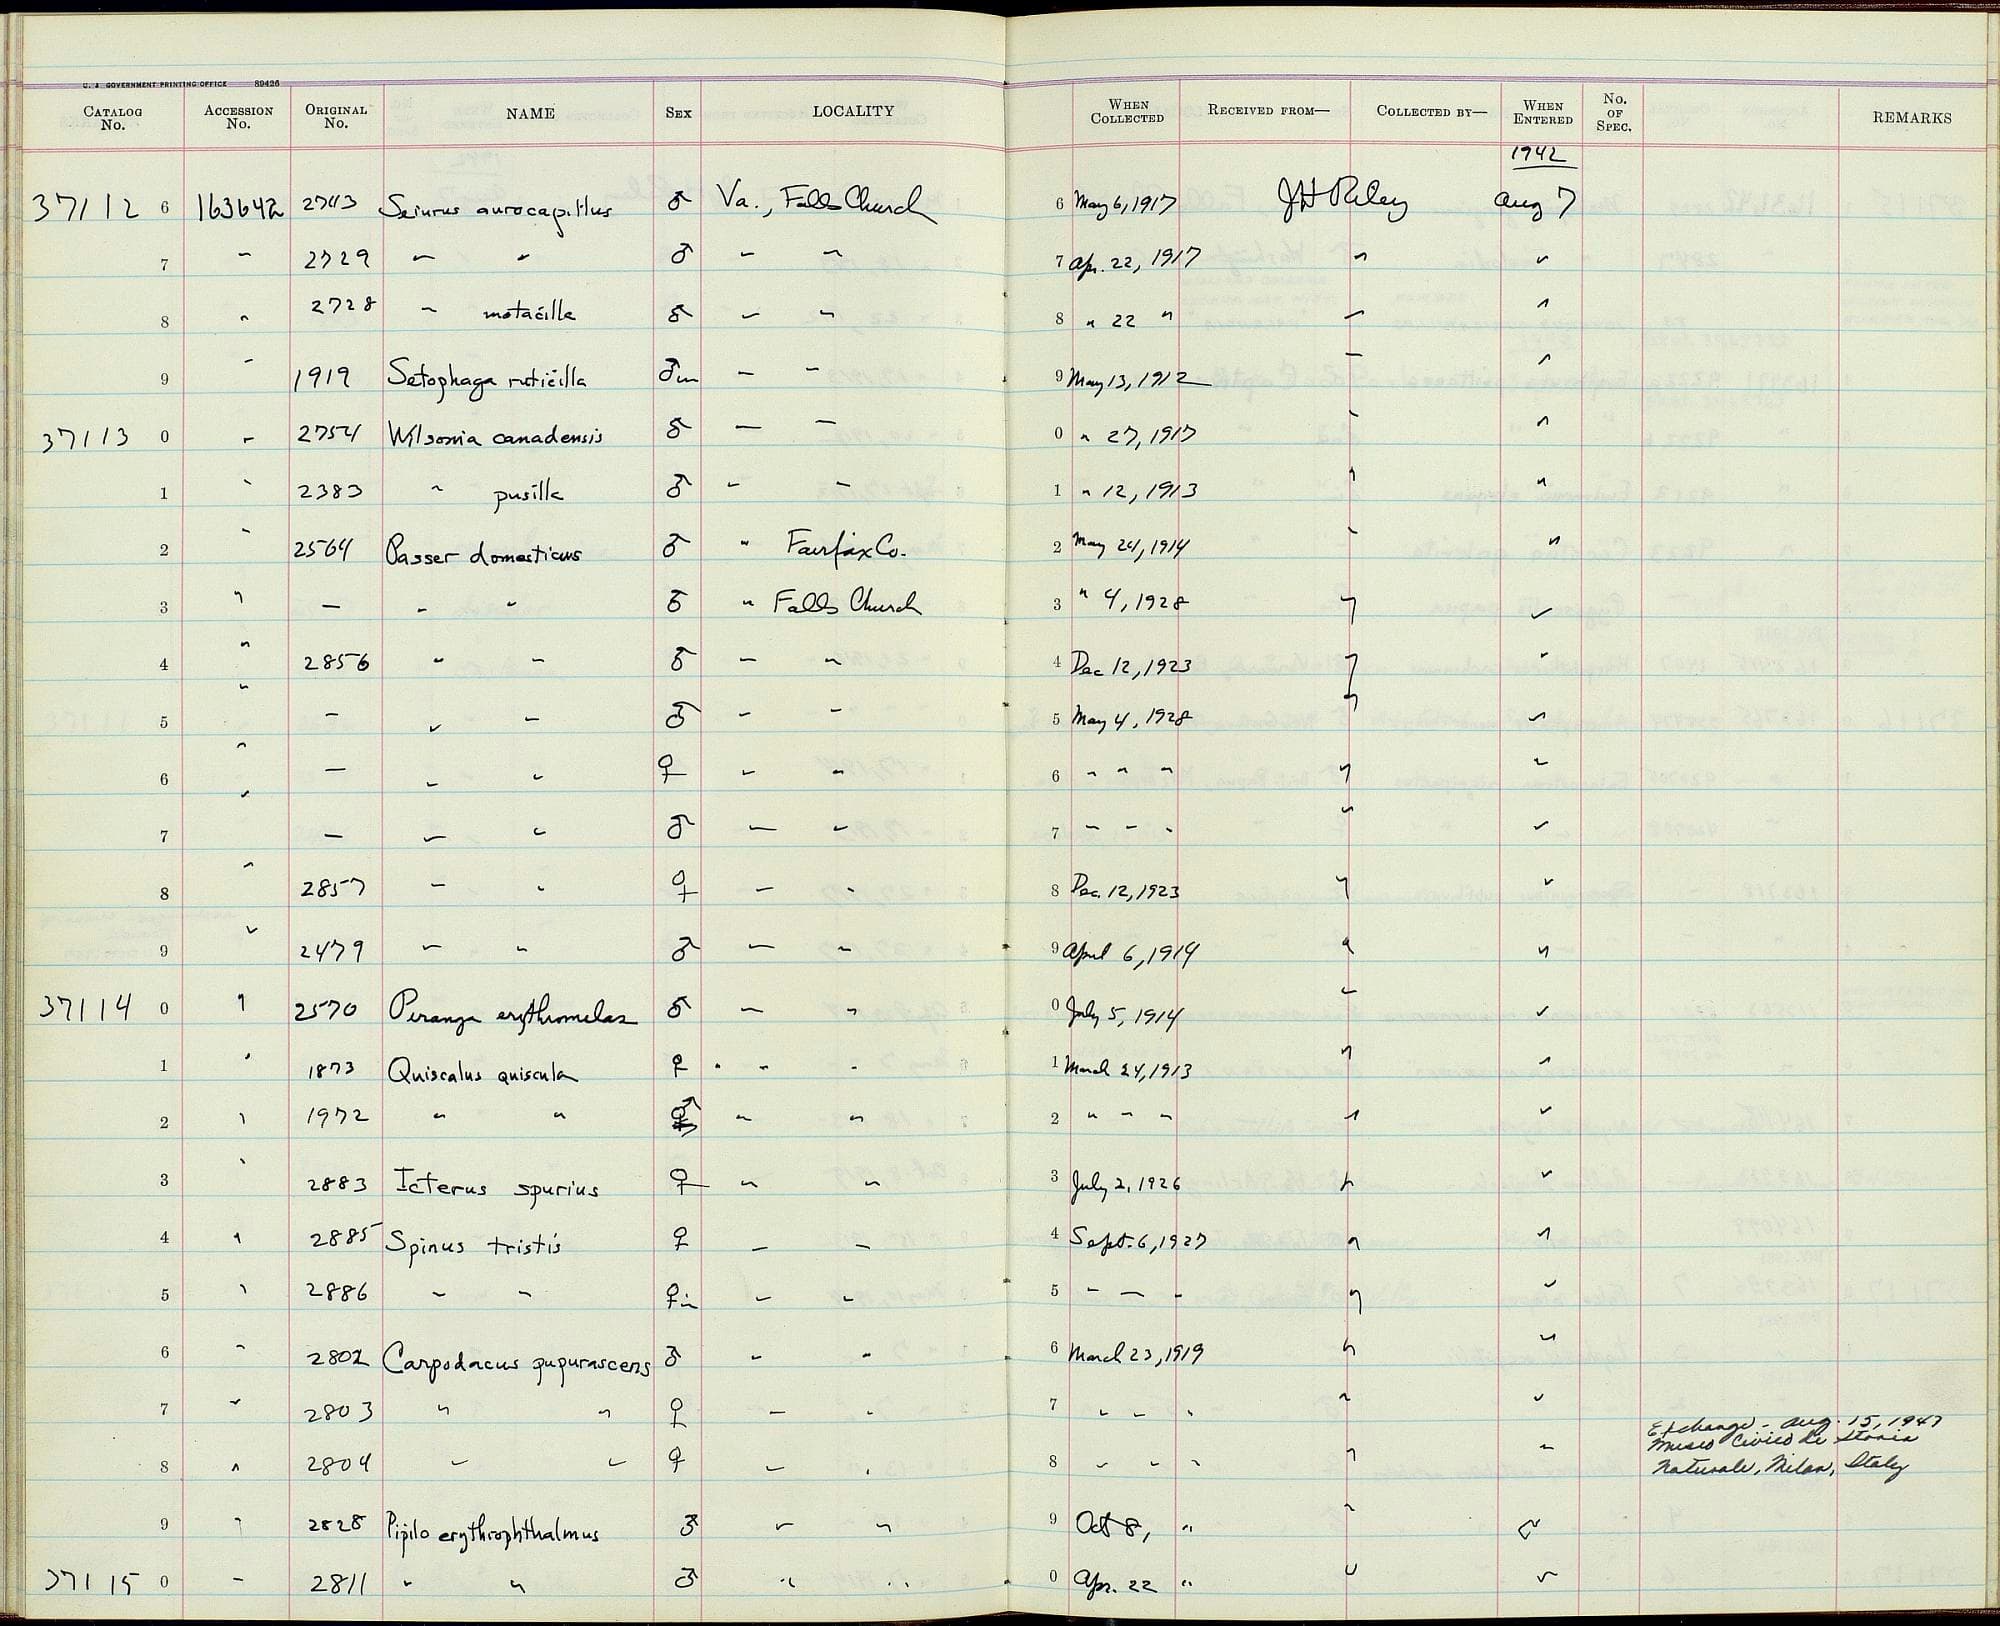 U. S. GOVERNMENT PRINTING OFFICE 89426
CATALOG No. ACCESSION No. ORIGINAL No. NAME SEX LOCALITY WHEN COLLECTED RECEIVED FROM— COLLECTED BY— WHEN ENTERED No. OF SPEC. REMARKS
1942
37112 6 163642 2743 Seiurus aurocapillus ♂ Va., Falls Church 6 May 6, 1917 JH Riley Aug 7
7 " 2729 " " ♂ " " 7 Apr. 22, 1917 " "
8 " 2728 " motacilla ♂ " " 8 " 22 " " "
9 " 1919 Setophaga ruticilla ♂im " " 9 May 13, 1912 " "
37113 0 " 2754 Wilsonia canadensis ♂ " " 0 " 27, 1917 " "
1 " 2383 " pusilla ♂ " " 1 " 12, 1913 " "
2 " 2564 Passer domesticus ♂ " Fairfax Co. 2 May 24, 1914 " "
3 " — " " ♂ " Falls Church 3 " 4, 1928 " "
4 " 2856 " " ♂ " " 4 Dec 12, 1923 " "
5 " — " " ♂ " " 5 May 4, 1928 " "
6 " — " " ♀ " " 6 " " " " "
7 " — " " ♂ " " 7 " " " " "
8 " 2857 " " ♀ " " 8 Dec. 12, 1923 " "
9 " 2479 " " ♂ " " 9 April 6, 1914 " "
37114 0 " 2570 Piranga erythromelas ♂ " " 0 July 5, 1914 " "
1 " 1873 Quiscalus quiscula ♀ " " 1 March 24, 1913 " "
2 " 1972 " " ♂ " " 2 " " " " "
3 " 2883 Icterus spurius ♀ " " 3 July 2, 1926 " "
4 " 2885 Spinus tristis ♀ " " 4 Sept. 6, 1927 " "
5 " 2886 " " ♀im " " 5 " " " " "
6 " 2802 Carpodacus pupurascens ♂ " " 6 March 23, 1919 " "
7 " 2803 " " ♀ " " 7 " " " " "
Exchange - Aug. 15, 1947
Museo Civico di Storia
8 " 2804 " " ♀ " " 8 " " " " " Naturale, Milan, Italy
9 " 2828 Pipilo erythrophthalmus ♂ " " 9 Oct 8, " " "
37115 0 " 2811 " " ♂ " " 0 Apr. 22 " " "